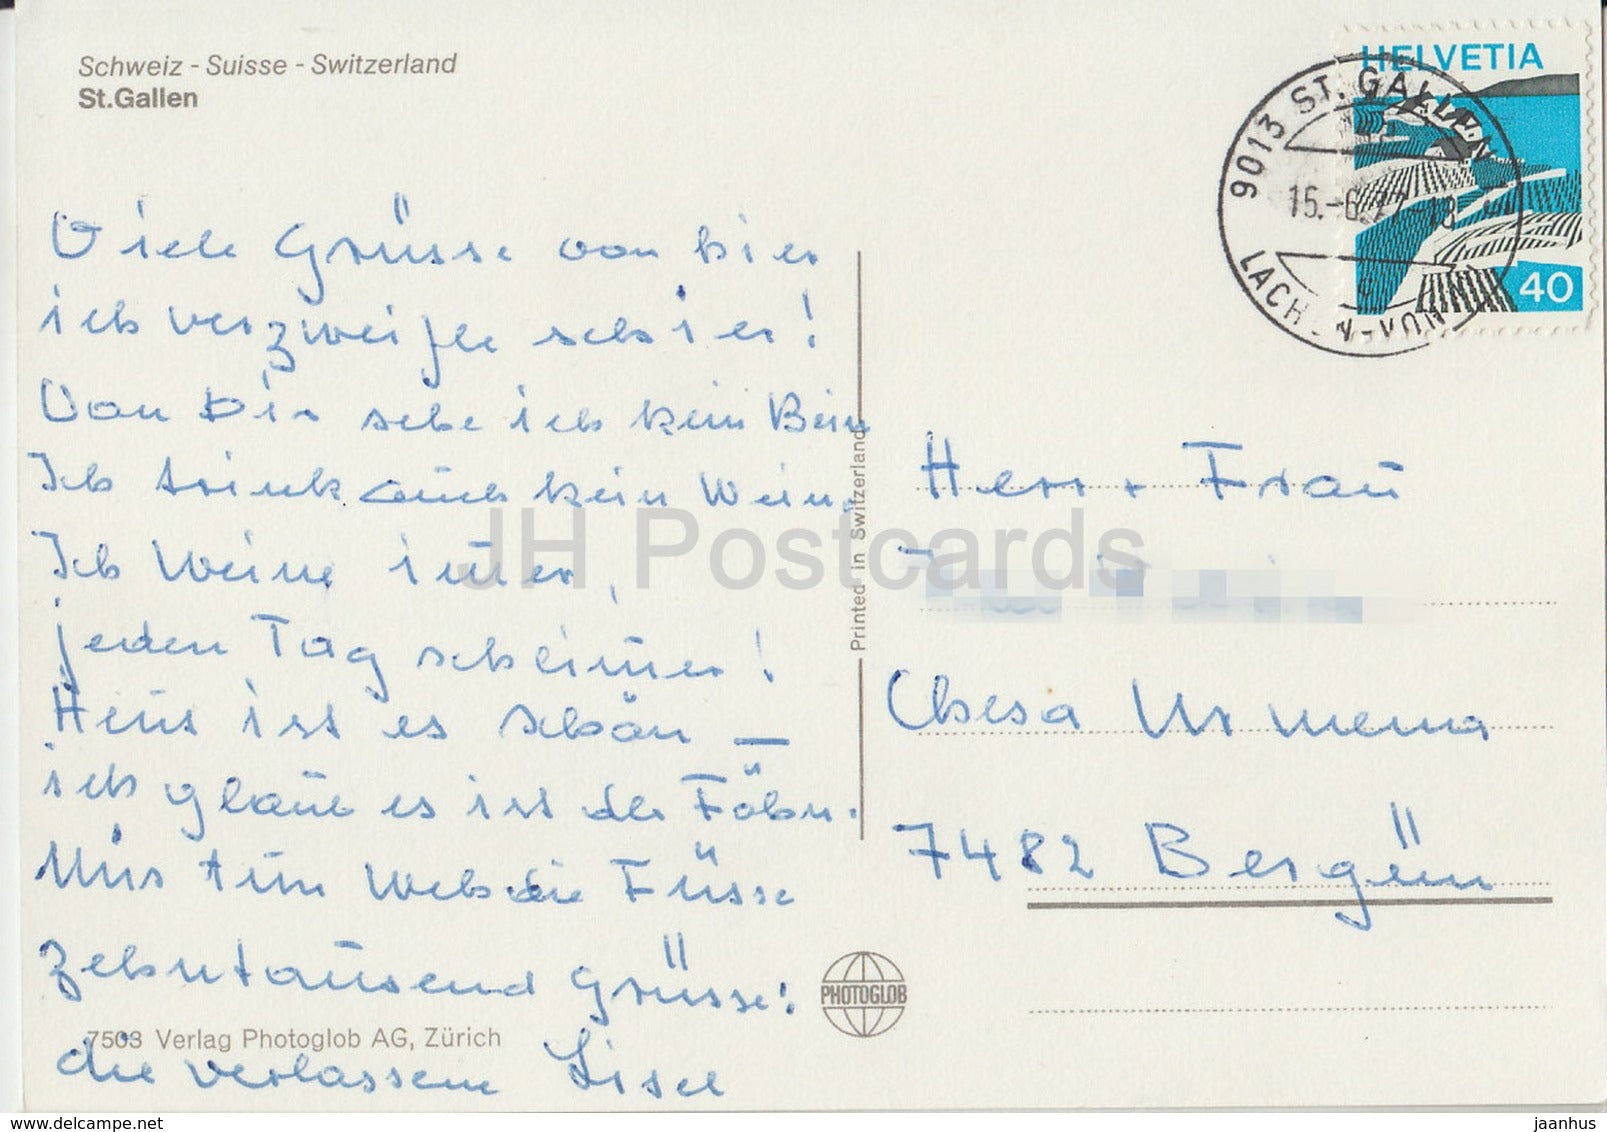 Schweiz - Suisse - Switzerland
St.Gallen
HELVETIA
40
9013 ST. GALLEN
15.-6.77-18
LACHEN-VON
Viele Grüsse von hier
ich verzweifle schier!
Von Dir sehe ich kein Bein
Ich trink auch kein Wein.
Ich Weine immer,
jeden Tag schlimmer!
Heut ist es schön —
ich glaub es ist der Föhn.
Mir tun Weh die Füsse
Zehntausend Grüsse!
die verlassene Lisel
Herr + Frau
Chesa Urmena
7482 Bergün
Printed in Switzerland
PHOTOGLOB
7503 Verlag Photoglob AG, Zürich
JH Postcards
www.delcampe.net
jaanhus